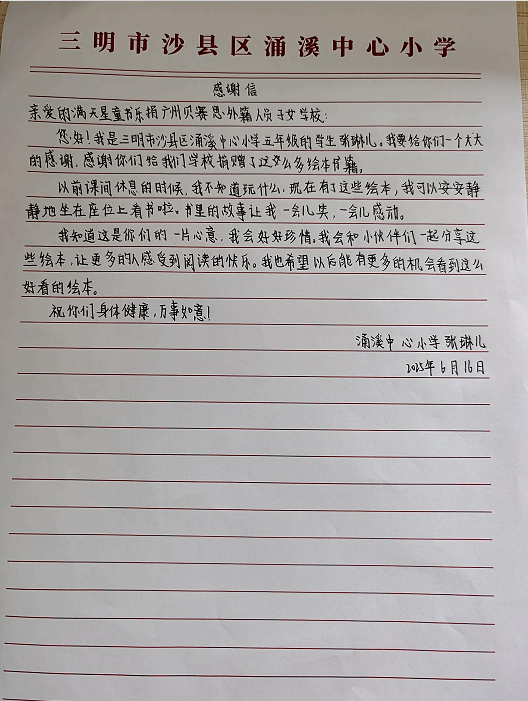 三明市沙县区涌溪中心小学
感谢信
亲爱的满天星童书乐捐广州贝赛思外籍人员子女学校：
您好！我是三明市沙县区涌溪中心小学五年级的学生张琳儿。我要给你们一个大大
的感谢，感谢你们给我们学校捐赠了这么多绘本书籍。
以前课间休息的时候，我不知道玩什么，现在有了这些绘本，我可以安安静
静地坐在座位上看书啦。书里的故事让我一会儿笑，一会儿感动。
我知道这是你们的一片心意，我会好好珍惜。我会和小伙伴们一起分享这
些绘本，让更多的人感受到阅读的快乐。我也希望以后能有更多的机会看到这么
好看的绘本。
祝你们身体健康，万事如意！
涌溪中心小学 张琳儿
2025年6月16日